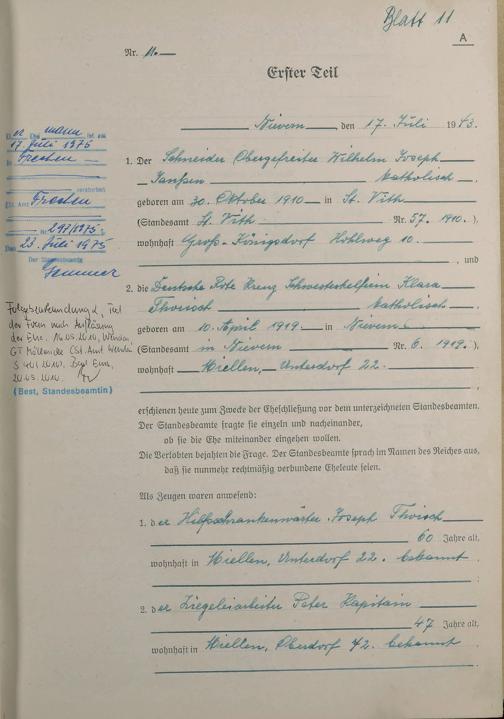 Blatt 11
A
Nr. 11.
Erster Teil
Nievern, den 17. Juli 1943.
1. Der Schneider Obergefreiter Wilhelm Joseph
Janßen katholisch
geboren am 30. Oktober 1910 in St. Vith
(Standesamt St. Vith Nr. 57. 1910.)
wohnhaft Groß-Königsdorf Hohlweg 10.
, und
2. die Deutsche Rote Kreuz Schwesterhelferin Klara
Thorisch katholisch
geboren am 10. April 1919 in Nievern
(Standesamt in Nievern Nr. 6 1919.)
wohnhaft Miellen, Unterdorf 22.
erschienen heute zum Zwecke der Eheschließung vor dem unterzeichneten Standesbeamten.
Der Standesbeamte fragte sie einzeln und nacheinander,
ob sie die Ehe miteinander eingehen wollen.
Die Verlobten bejahten die Frage. Der Standesbeamte sprach im Namen des Reiches aus,
daß sie nunmehr rechtmäßig verbundene Eheleute seien.
Als Zeugen waren anwesend:
1. der Hilfsschrankenwärter Joseph Thorisch
60 Jahre alt,
wohnhaft in Miellen, Unterdorf 22. bekannt
;
2. der Ziegeleiarbeiter Peter Kapitain
47 Jahre alt,
wohnhaft in Miellen, Oberdorf 42. bekannt
mann ist am
17. Juli 1975
in Frechen
verstorben
(St. Amt Frechen
Nr. 297/1975)
Den 23. Juli 1975
Der Standesbeamte
Folgebeurkundung 2. Teil
der Ehe. 16.05.2010,
Bad Ems,
20.05.2010.
(Best, Standesbeamtin)